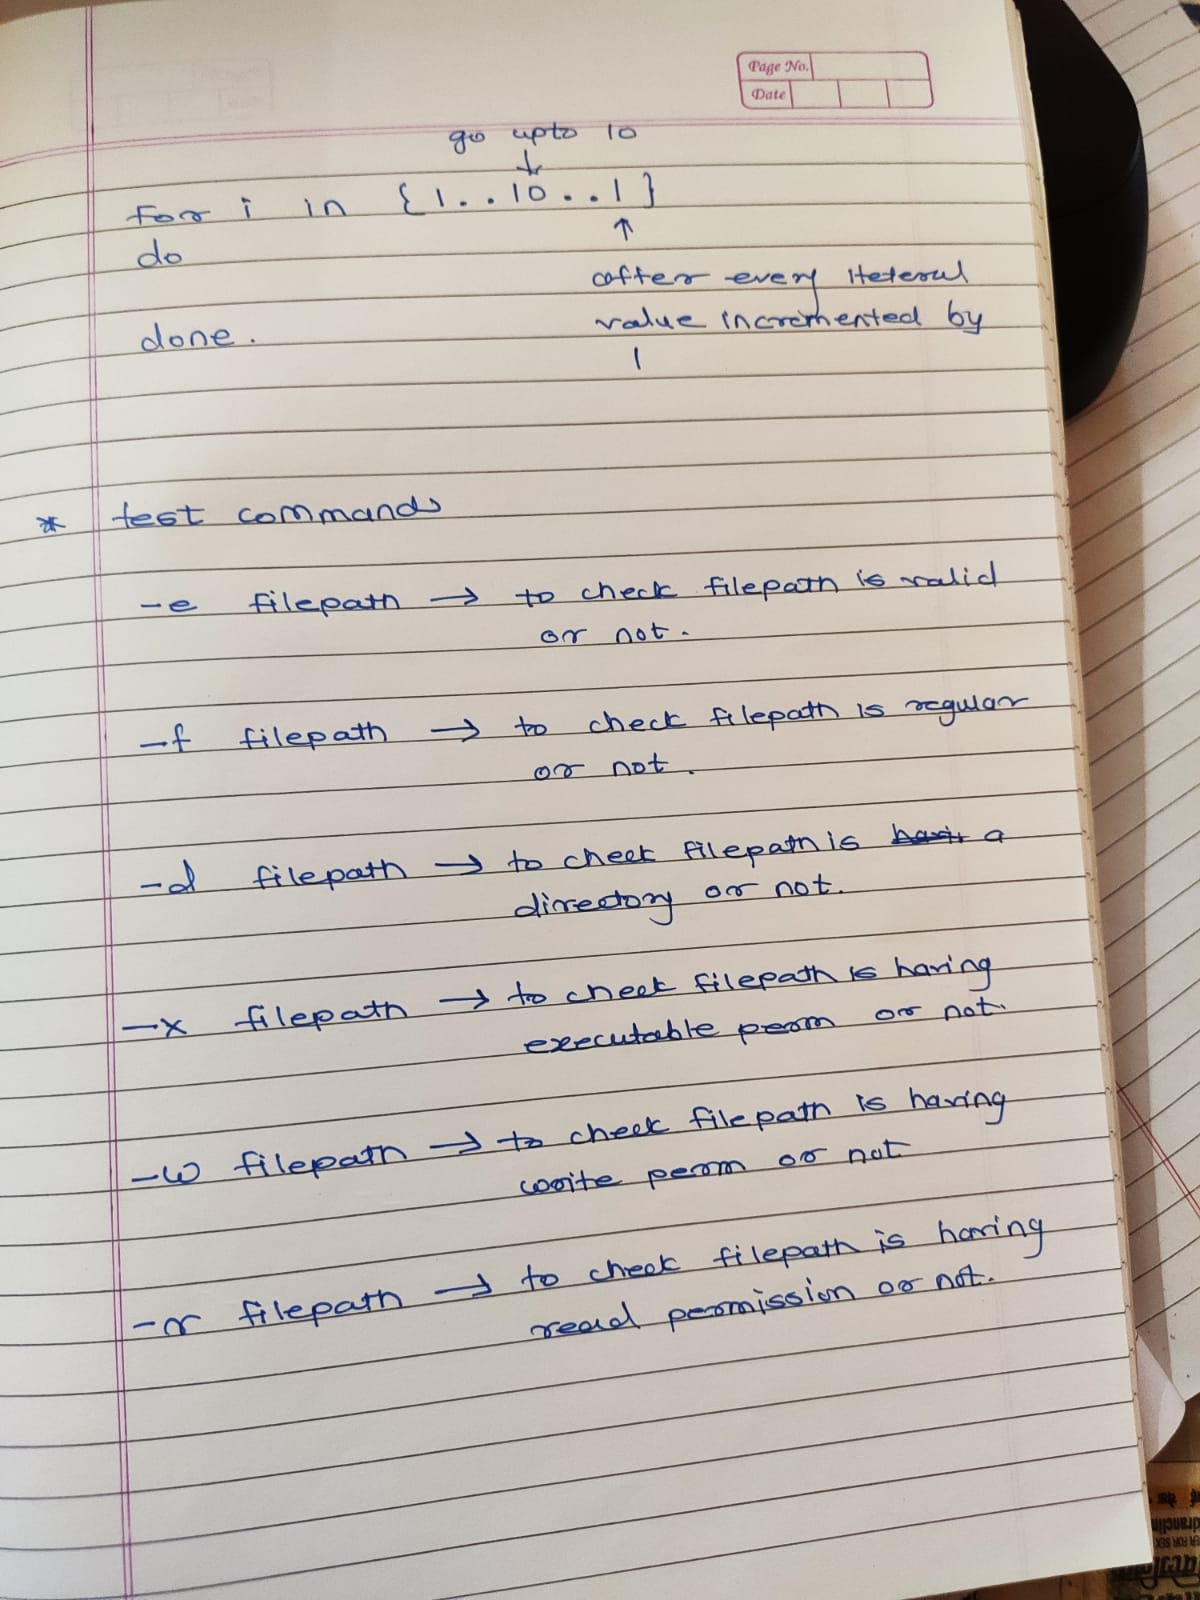 Page No.
Date
go upto 10
↓
for i in {1..10..1}
↑
do
after every iteral
value incremented by
1
done.
* test commands
-e filepath → to check filepath is valid
or not.
-f filepath → to check filepath is regular
or not.
-d filepath → to check filepath is a
directory or not.
-x filepath → to check filepath is having
executable perm or not.
-w filepath → to check filepath is having
write perm or not
-r filepath → to check filepath is having
read permission or not.